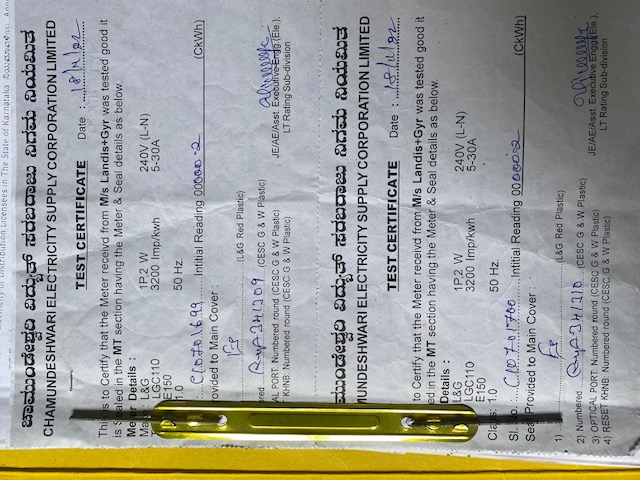 ಚಾಮುಂಡೇಶ್ವರಿ ವಿದ್ಯುತ್ ಸರಬರಾಜು ನಿಗಮ ನಿಯಮಿತ
CHAMUNDESHWARI ELECTRICITY SUPPLY CORPORATION LIMITED
TEST CERTIFICATE
Date : 18/11/22
to Certify that the Meter receivd from M/s Landis+Gyr was tested good it
is Sealed in the MT section having the Meter & Seal details as below.
Meter Details :
L&G 1P.2 W 240V (L-N)
LGC110 3200 Imp/kwh 5-30A
E150
1.0 50 Hz.
C10701699 Intitial Reading 000000.2 (CkWh)
rovided to Main Cover :
(L&G Red Plastic)
341209 (CESC G & W Plastic)
AL PORT: Numbered round (CESC G & W Plastic)
KHNB: Numbered round (CESC G & W Plastic)
JE/AE/Asst. Executive Engg(Ele.),
LT Rating Sub-division
ಮುಂಡೇಶ್ವರಿ ವಿದ್ಯುತ್ ಸರಬರಾಜು ನಿಗಮ ನಿಯಮಿತ
MUNDESHWARI ELECTRICITY SUPPLY CORPORATION LIMITED
TEST CERTIFICATE
Date : 18/11/22
to Certify that the Meter receivd from M/s Landis+Gyr was tested good it
ed in the MT section having the Meter & Seal details as below.
Details :
L&G 1P.2 W 240V (L-N)
LGC110 3200 Imp/kwh 5-30A
E150
Class 1.0 50 Hz.
Sl. No. C10701700 Intitial Reading 000000.2 (CkWh)
Seal Provided to Main Cover :
1) (L&G Red Plastic)
2) Numbered 341210 (CESC G & W Plastic)
3) OPTICAL PORT: Numbered round (CESC G & W Plastic)
4) RESET KHNB: Numbered round (CESC G & W Plastic)
JE/AE/Asst. Executive Engg(Ele.),
LT Rating Sub-division